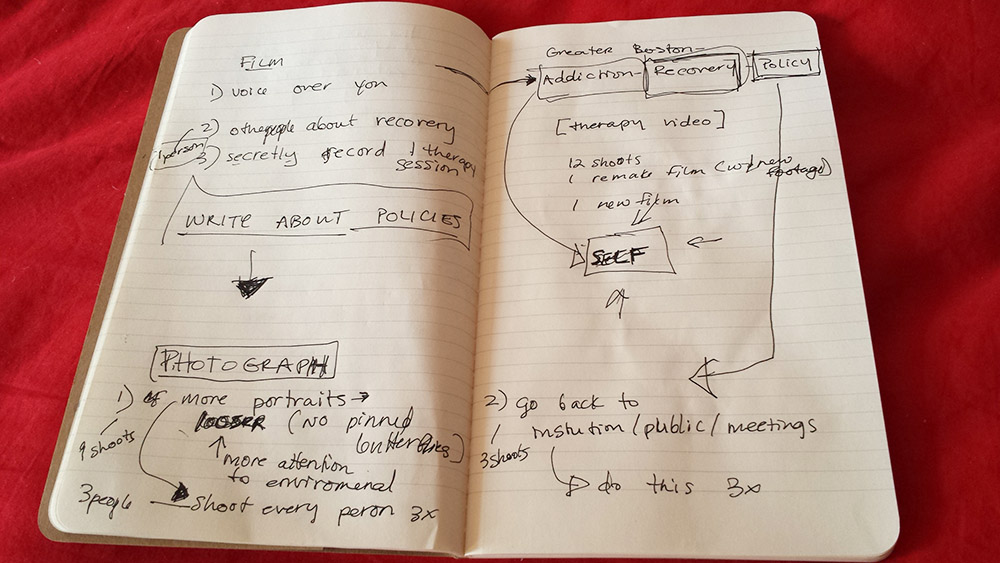 FILM
1) voice over you
2) other people about recovery
1 person
3) secretly record 1 therapy
session
WRITE ABOUT POLICIES
PHOTOGRAPH
1) more portraits
LOOSER (NO pinned
butterflies)
9 shoots
more attention
to enviromenal
3 people
Shoot every peron 3x
Greater Boston
Addiction - Recovery - Policy
[therapy video]
12 shoots
1 remake film (w/ new
footage)
1 new film
SELF
2) go back to
instution/public/meetings
3 shoots
do this 3x